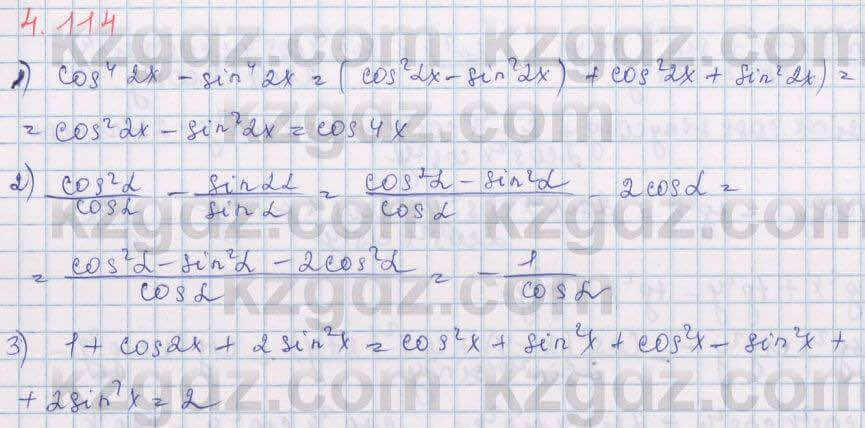 4.114
1) cos⁴ 2x - sin⁴ 2x = ( cos²2x - sin²2x ) + cos²2x + sin² 2x) =
= cos² 2x - sin² 2x = cos 4x
2) cos²α / cos α - sin 2α / sin α = cos²α - sin²α / cos α - 2 cos α =
= cos²α - sin²α - 2cos²α / cos α = - 1 / cos α
3) 1 + cos 2x + 2 sin²x = cos²x + sin²x + cos²x - sin²x +
+ 2sin²x = 2
kzgdz.com
kzgdz.com
kzgdz.com
kzgdz.com
kzgdz.com